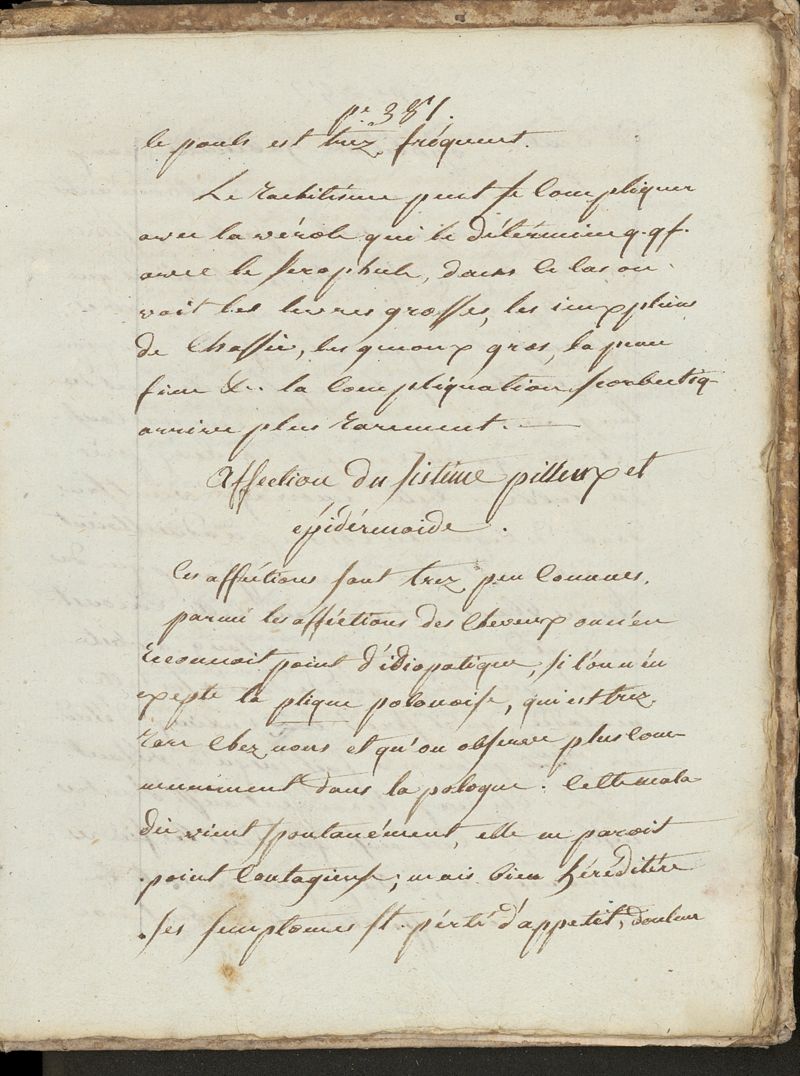 pe. 381.
le pouls est trez fréquent.
Le rachitisme peut se compliquer
avec la vérole qui le détermine q.qf.
avec le scrophule, dans ce cas on
voit les levres grosses, les ieux pleins
de chassie, les gneoux gros, la peau
fine &c. la compliquation scorbutiq
arrive plus rarement. —
Affection du sistême pilleux et
épidérmoide.
Ces afféctions sont trez peu connues.
parmi les afféctions des cheveux on n'en
reconnoit point d'idiopatique, si l'on n'en
exepte la plique polonoise, qui est trez
rare chez nous et qu'on observe plus com-
munement dans la pologne. Cette mala
die vient spontanément, elle ne paroit
point contagieuse; mais bien héréditére
. ses simptomes st. pérte d'appetit, douleur